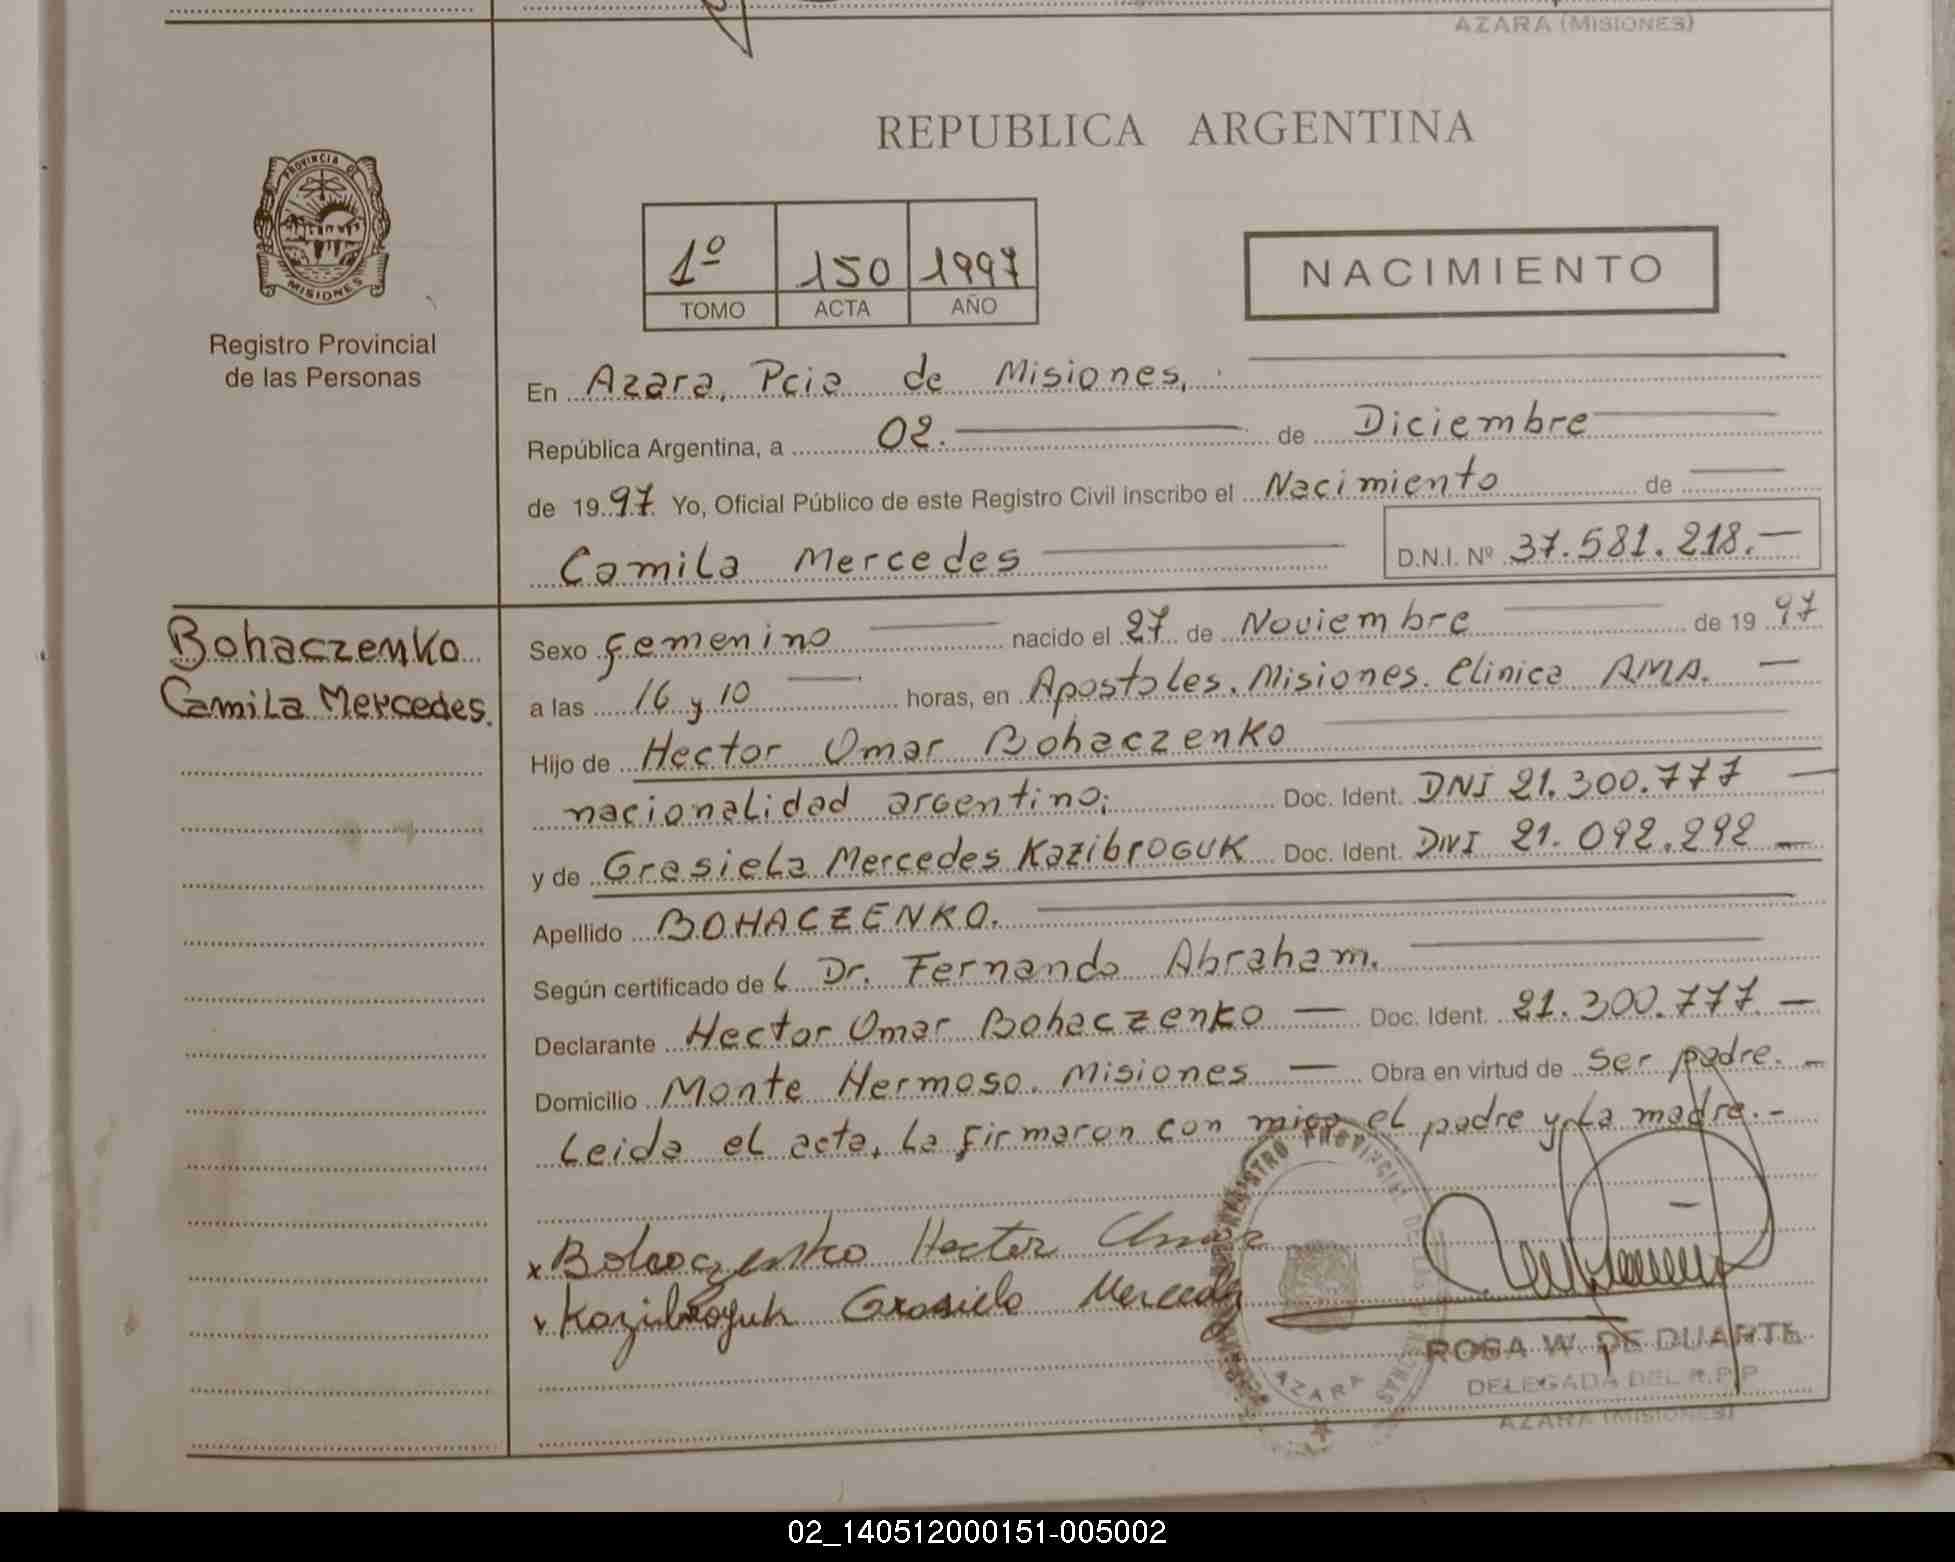 AZARA (MISIONES)
REPUBLICA ARGENTINA
PROVINCIA DE
MISIONES
Registro Provincial
de las Personas
1º 150 1997
TOMO ACTA AÑO
NACIMIENTO
En Azara, Pcia de Misiones,
República Argentina, a 02. de Diciembre
de 1997 Yo, Oficial Público de este Registro Civil inscribo el Nacimiento de
Camila Mercedes D.N.I. Nº 37.581.218.—
Bohaczenko
Camila Mercedes.
Sexo femenino nacido el 27 de Noviembre de 1997
a las 16 y 10 horas, en Apostoles. Misiones. Clinica AMA. —
Hijo de Hector Omar Bohaczenko
nacionalidad argentino; Doc. Ident. DNI 21.300.777 —
y de Grasiela Mercedes Kazibroguk Doc. Ident. DNI 21.092.292 —
Apellido BOHACZENKO.
Según certificado de L Dr. Fernando Abraham.
Declarante Hector Omar Bohaczenko — Doc. Ident. 21.300.777. —
Domicilio Monte Hermoso. Misiones — Obra en virtud de ser padre. —
Leida el acta, la firmaron con migo el padre y la madre.-
x Bohaczenko Hector Omar
Kozibroguk Grasiela Mercedes
REGISTRO PROVINCIAL DE LAS PERSONAS
AZARA
ROSA W. DE DUARTE
DELEGADA DEL R.P.P
AZARA (MISIONES)
02_140512000151-005002